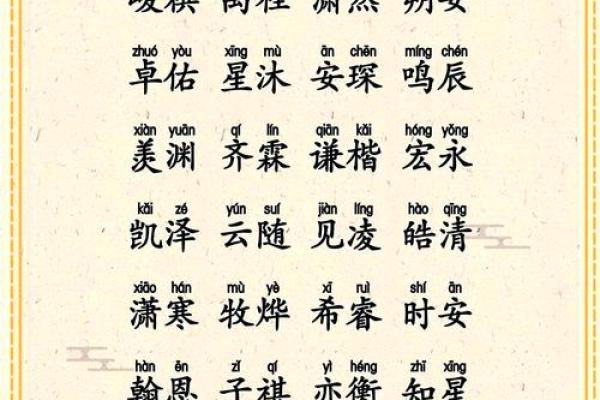 潇然 朔安
zhuó yòu xīng mù ān chēn míng chén
卓佑 星沐 安琛 鸣辰
xiàn yuān qí lín qiān kǎi hóng yǒng
羡渊 齐霖 谦楷 宏永
kǎi zé yún suí jiàn líng hào qīng
凯泽 云随 见凌 皓清
xiāo hán mù yè xī ruì shí ān
潇寒 牧烨 希睿 时安
hàn ēn zǐ qí yì héng zhī xīng
翰恩 子祺 亦衡 知星